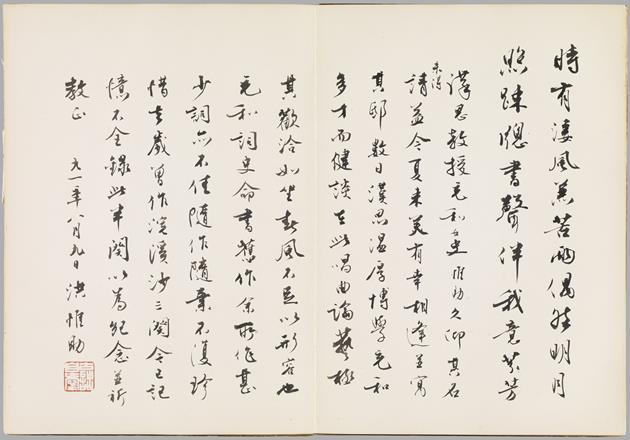 時有淒風兼苦雨偶然明月
照疎牕書聲伴我意芬芳
漢思教授充和女史惟助久仰其名
未得請益今夏來美有幸相逢並寓
其邸數日漢思溫厚博學充和
多才而健談在此唱曲論藝極
其歡洽如坐春風不足以形容也
充和詞史命書舊作余所作甚
少詞亦不佳隨作隨棄不復珍
惜去歲曾作浣溪沙三闋今已記
憶不全錄此半闋以為紀念並祈
教正 九一年八月九日 洪惟助